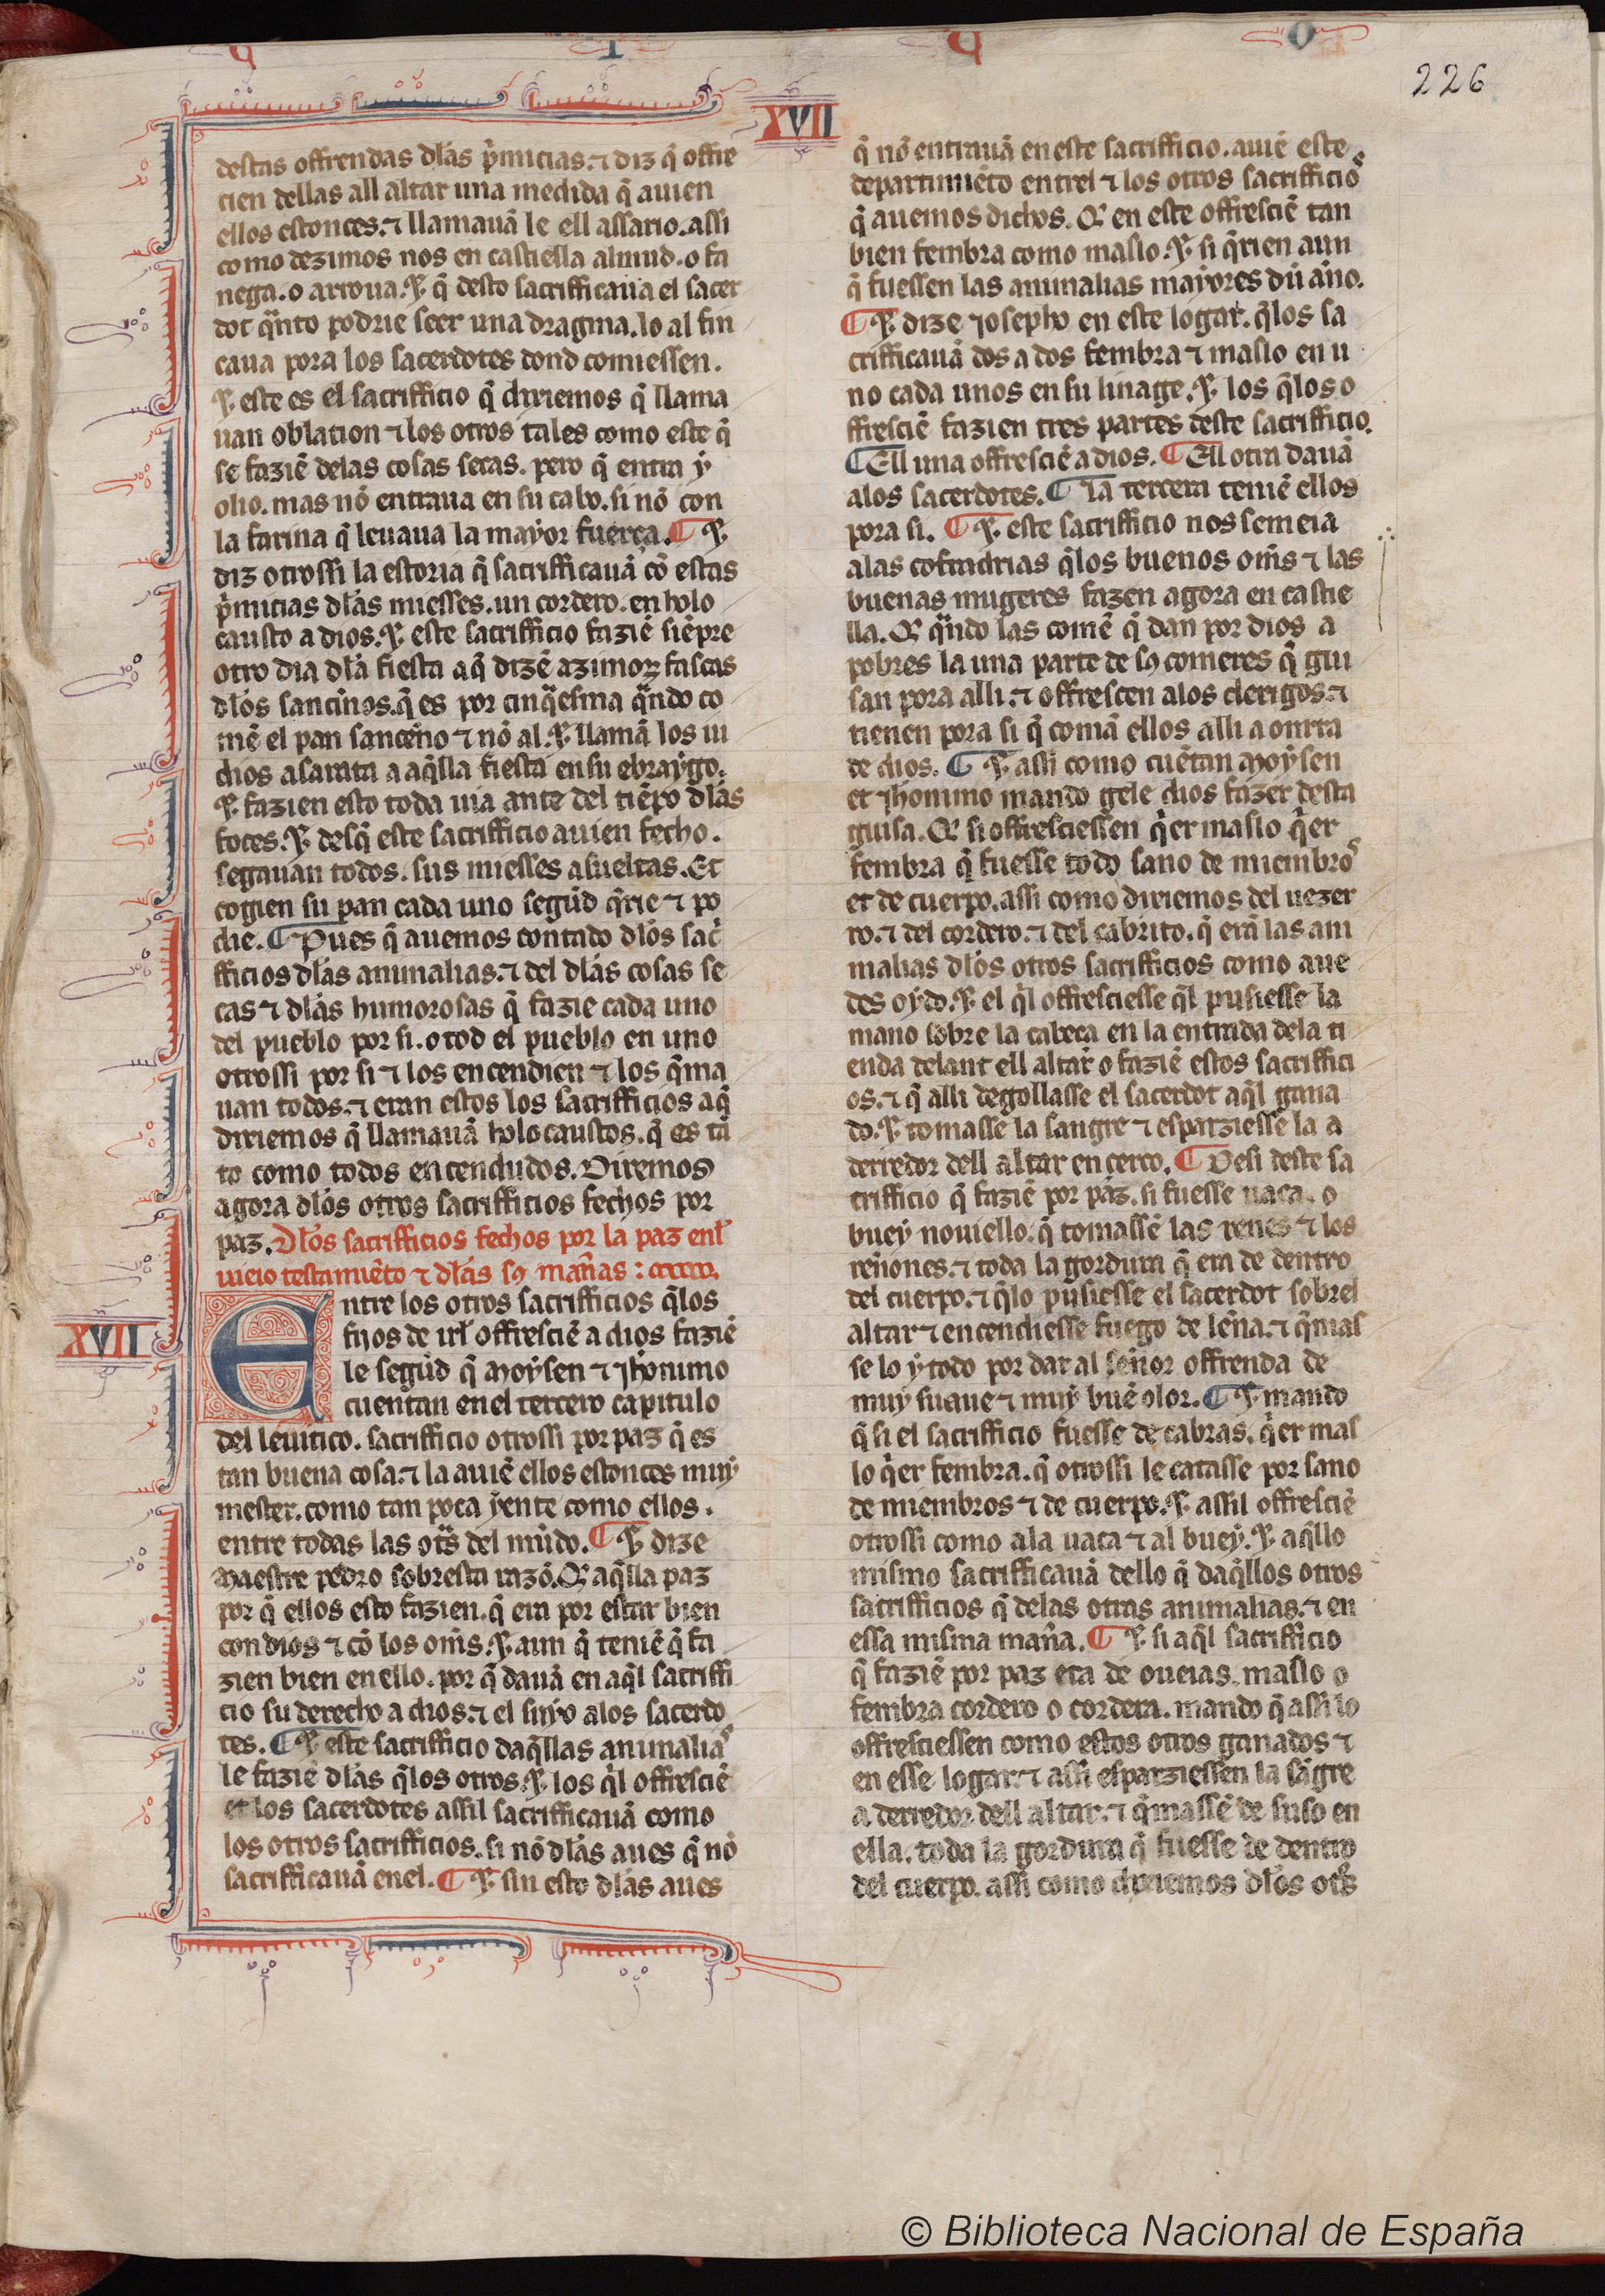 226
XVII
destas offrendas dłas p̃micias. ⁊ diz q̃ offre
cien dellas all altar una medida q̃ auien
ellos estonces. ⁊ llamauã le ell assario. assi
como dezimos nos en castiella almud. o fa
nega. o arroua. ⁊ q̃ desto sacrifficaua el sacer
dot q̃nto podrie seer una dragma. lo al fin
caua pora los sacerdotes dond comiessen.
⁊ este es el sacrifficio q̃ dixiemos q̃ llama
uan oblation ⁊ los otros tales como este q̃
se faziẽ delas cosas secas. pero q̃ entra ẏ
olio. mas nõ entraua en su cabo. si nõ con
la farina q̃ leuaua la mayor fuerça. ¶ ⁊
diz otrossi la estoria q̃ sacrifficauã cõ estas
p̃micias dłas miesses. un cordero. en holo
causto a dios. ⁊ este sacrifficio faziẽ siẽpre
otro dia dła fiesta a q̃ dizẽ azimoꝝ fascas
dłos sancinos. q̃ es por cinq̃esma q̃ndo co
mẽ el pan sanceno ⁊ nõ al. ⁊ llamã los iu
dios asarata a aq̃lla fiesta en su ebraẏgo.
⁊ fazien esto toda uia ante del tiẽpo dłas
foces. ⁊ desq̃ este sacrifficio auien fecho.
segauan todos. sus miesses asueltas. Et
cogien su pan cada uno segũd q̃rie ⁊ po
die. ¶ Pues q̃ auemos contado dłos sac̃
fficios dłas animalias. ⁊ del dłas cosas se
cas ⁊ dłas humorosas q̃ fazie cada uno
del pueblo por si. o tod el pueblo en uno
otrossi por si ⁊ los encendien ⁊ los q̃ma
uan todos. ⁊ eran estos los sacrifficios aq̃
dixiemos q̃ llamauã holocaustos. q̃ es tã
to como todos encendudos. Diremos
agora dłos otros sacrifficios fechos por
paz. Dłos sacrifficios fechos por la paz enł
uieio testamẽto ⁊ dłas sꝯ mañas :
XVII
Entre los otros sacrifficios q̃los
fijos de irł offresciẽ a dios faziẽ
le segũd q̃ moẏsen ⁊ jhonimo
cuentan en el tercero capitulo
del leuitico. sacrifficio otrossi por paz q̃ es
tan buena cosa. ⁊ la auiẽ ellos estonces muẏ
mester. como tan poca ẏente como ellos.
entre todas las ot̃s del mũdo. ¶ ⁊ dize
maestre pedro sobresta razõ. Q̃ aq̃lla paz
por q̃ ellos esto fazien. q̃ era por estar bien
con dios ⁊ cõ los om̃s. ⁊ aun q̃ teniẽ q̃ fa
zien bien en ello. por q̃ dauã en aq̃l sacriffi
cio su derecho a dios. ⁊ el suẏo alos sacerdo
tes. ¶ ⁊ este sacrifficio daq̃llas animalias
le faziẽ dłas q̃los otros. ⁊ los q̃l offresciẽ
et los sacerdotes assil sacrifficauã como
los otros sacrifficios. si nõ dłas aues q̃ nõ
sacrifficauã enel. ¶ ⁊ sin esto dłas aues
q̃ nõ entrauã en este sacrifficio. auiẽ este
departimiẽto entrel ⁊ los otros sacrifficios
q̃ auemos dichos. Q̃ en este offresciẽ tan
bien fembra como maslo. ⁊ si q̃rien aun
q̃ fuessen las animalias mayores dũ año.
¶ ⁊ dize iosepho en este logar. q̃los sa
crifficauã dos a dos fembra ⁊ maslo en u
no cada unos en su linage. ⁊ los q̃los o
ffresciẽ fazien tres partes deste sacrifficio.
¶ Ell una offresciẽ a dios. ¶ Ell otra dauã
alos sacerdotes. ¶ La tercera teniẽ ellos
pora si. ¶ ⁊ este sacrifficio nos semeia
alas cofradrias q̃los buenos om̃s ⁊ las
buenas mugeres fazen agora en castie
lla. Q̃ q̃ndo las comẽ q̃ dan por dios a
pobres la una parte de sꝯ comeres q̃ gui
san pora alli. ⁊ offrescen alos clerigos. ⁊
tienen pora si q̃ comã ellos alli a onrra
de dios. ¶ ⁊ assi como cuẽtan moẏsen
et jhonimo mando gele dios fazer desta
guisa. Q̃ si offresciessen q̃er maslo q̃er
fembra q̃ fuesse todo sano de miembros
et de cuerpo. assi como dixiemos del uezer
ro. ⁊ del cordero. ⁊ del cabrito. q̃ erã las ani
malias dłos otros sacrifficios como aue
des oẏdo. ⁊ el q̃l offresciesse q̃l pusiesse la
mano sobre la cabeça en la entrada dela ti
enda delant ell altar o faziẽ estos sacriffici
os. ⁊ q̃ alli degollasse el sacerdot aq̃l gana
do. ⁊ tomasse la sangre ⁊ esparziesse la a
derredor dell altar en cerco. ¶ Desi deste sa
crifficio q̃ faziẽ por paz. si fuesse uaca. o
bueẏ nouiello. q̃ tomassẽ las renes ⁊ los
reñones. ⁊ toda la gordura q̃ era de dentro
del cuerpo. ⁊ q̃lo pusiesse el sacerdot sobrel
altar ⁊ encendiesse fuego de leña. ⁊ q̃mas
se lo ẏ todo por dar al señor offrenda de
muẏ suaue ⁊ muẏ buẽ olor. ¶ ⁊ mando
q̃ si el sacrifficio fuesse de cabras. q̃er mas
lo q̃er fembra. q̃ otrossi le catasse por sano
de miembros ⁊ de cuerpo. ⁊ assil offresciẽ
otrossi como ala uaca ⁊ al bueẏ. ⁊ aq̃llo
mismo sacrifficauã dello q̃ daq̃llos otros
sacrifficios q̃ delas otras animalias. ⁊ en
essa misma mañа. ¶ ⁊ si aq̃l sacrifficio
q̃ faziẽ por paz era de oueias. maslo o
fembra cordero o cordera. mando q̃ assi lo
offresciessen como estos otros ganados ⁊
en esse logar. ⁊ assi esparziessen la sãgre
a derredor dell altar. ⁊ q̃massẽ de suso en
ella. toda la gordura q̃ fuesse de dentro
del cuerpo. assi como dixiemos dłos ot̃s
© Biblioteca Nacional de España